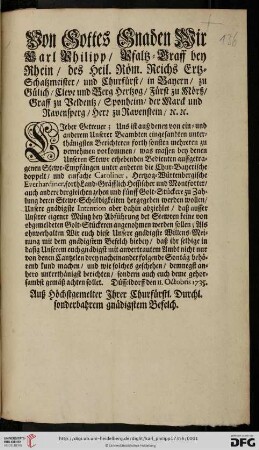 Von Gottes Gnaden Wir
Carl Philipp / Pfaltz-Graff bey
Rhein / des Heil. Röm. Reichs Ertz-
Schatzmeister / und Churfürst / in Bayern / zu
Gülich / Cleve und Berg Hertzog / Fürst zu Mörß/
Graff zu Veldentz / Sponheim / der Marck und
Ravensperg / Herr zu Ravenstein / ꝛc. ꝛc.
Jeber Getrewe ; Uns ist auß denen von ein- und
anderen Unserer Beambten eingesandten unter-
thänigsten Berichteren forth sonsten mehreres zu
vernehmen vorkommen / was massen bey denen
Unseren Stewr erhebenden Bedienten außgetra-
genen Stewr-Empfängen unter anderen die Chur-Bayerische
doppelt- und einfache Caroliner, Hertzog-Württenbergische
Everhardiner, forth Land-Gräfflich Hessische und Montforter
auch andere dergleichen 
Unsere gnädigste Intention aber dahin abziehlet / daß ausser
Unserer eigener Müntz bey Abführung der Stewren keine von
obgemeldten Gold-Stückeren angenohmen werden sollen ; Als
ohnverhalten Wir euch diese Unsere gnädigste Willens-Mei-
nung mit dem gnädigstem Befelch hiebey / daß ihr selbige in
dasig Unserem euch gnädigst anvertrautem Ambt nicht nur
von denen Cantzelen drey nacheinander folgende Sontäg behö-
rend kund machen / und wie solches geschehen / demnegst an-
hero unterthänigst berichten / sondern auch euch deme gehor-
sambst gemäß achten sollet. Düsseldorff den 11. Octobris 1735.
Auß Höchstgemelter Ihrer Churfürstl. Durchl.
sonderbahrem gnädigstem Befelch.
126